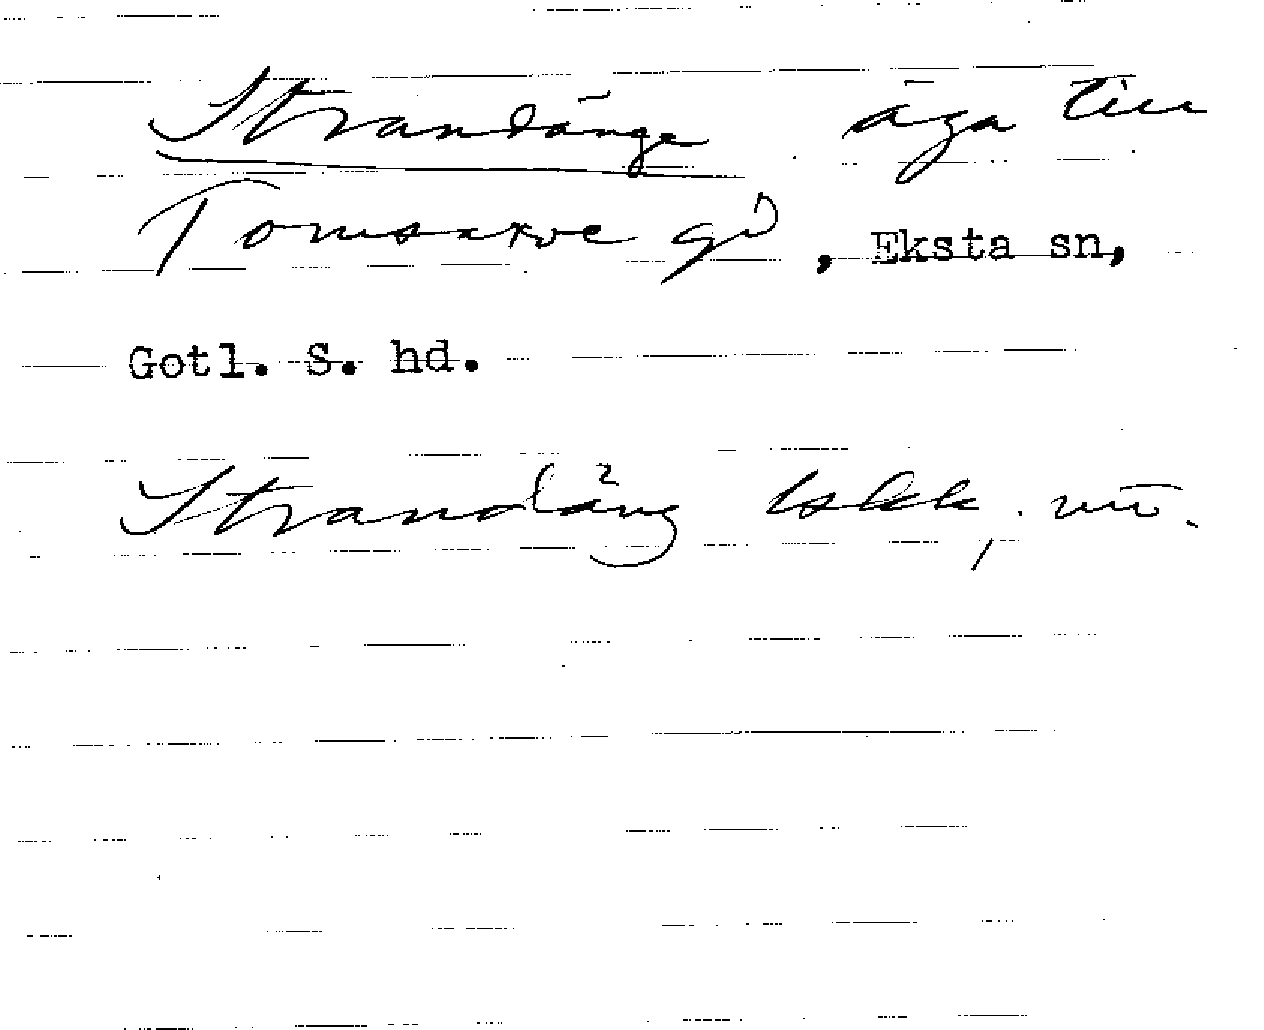 Strandänge äga till
Tomsarve gd, Eksta sn,
Gotl. S. hd.
Strandäng